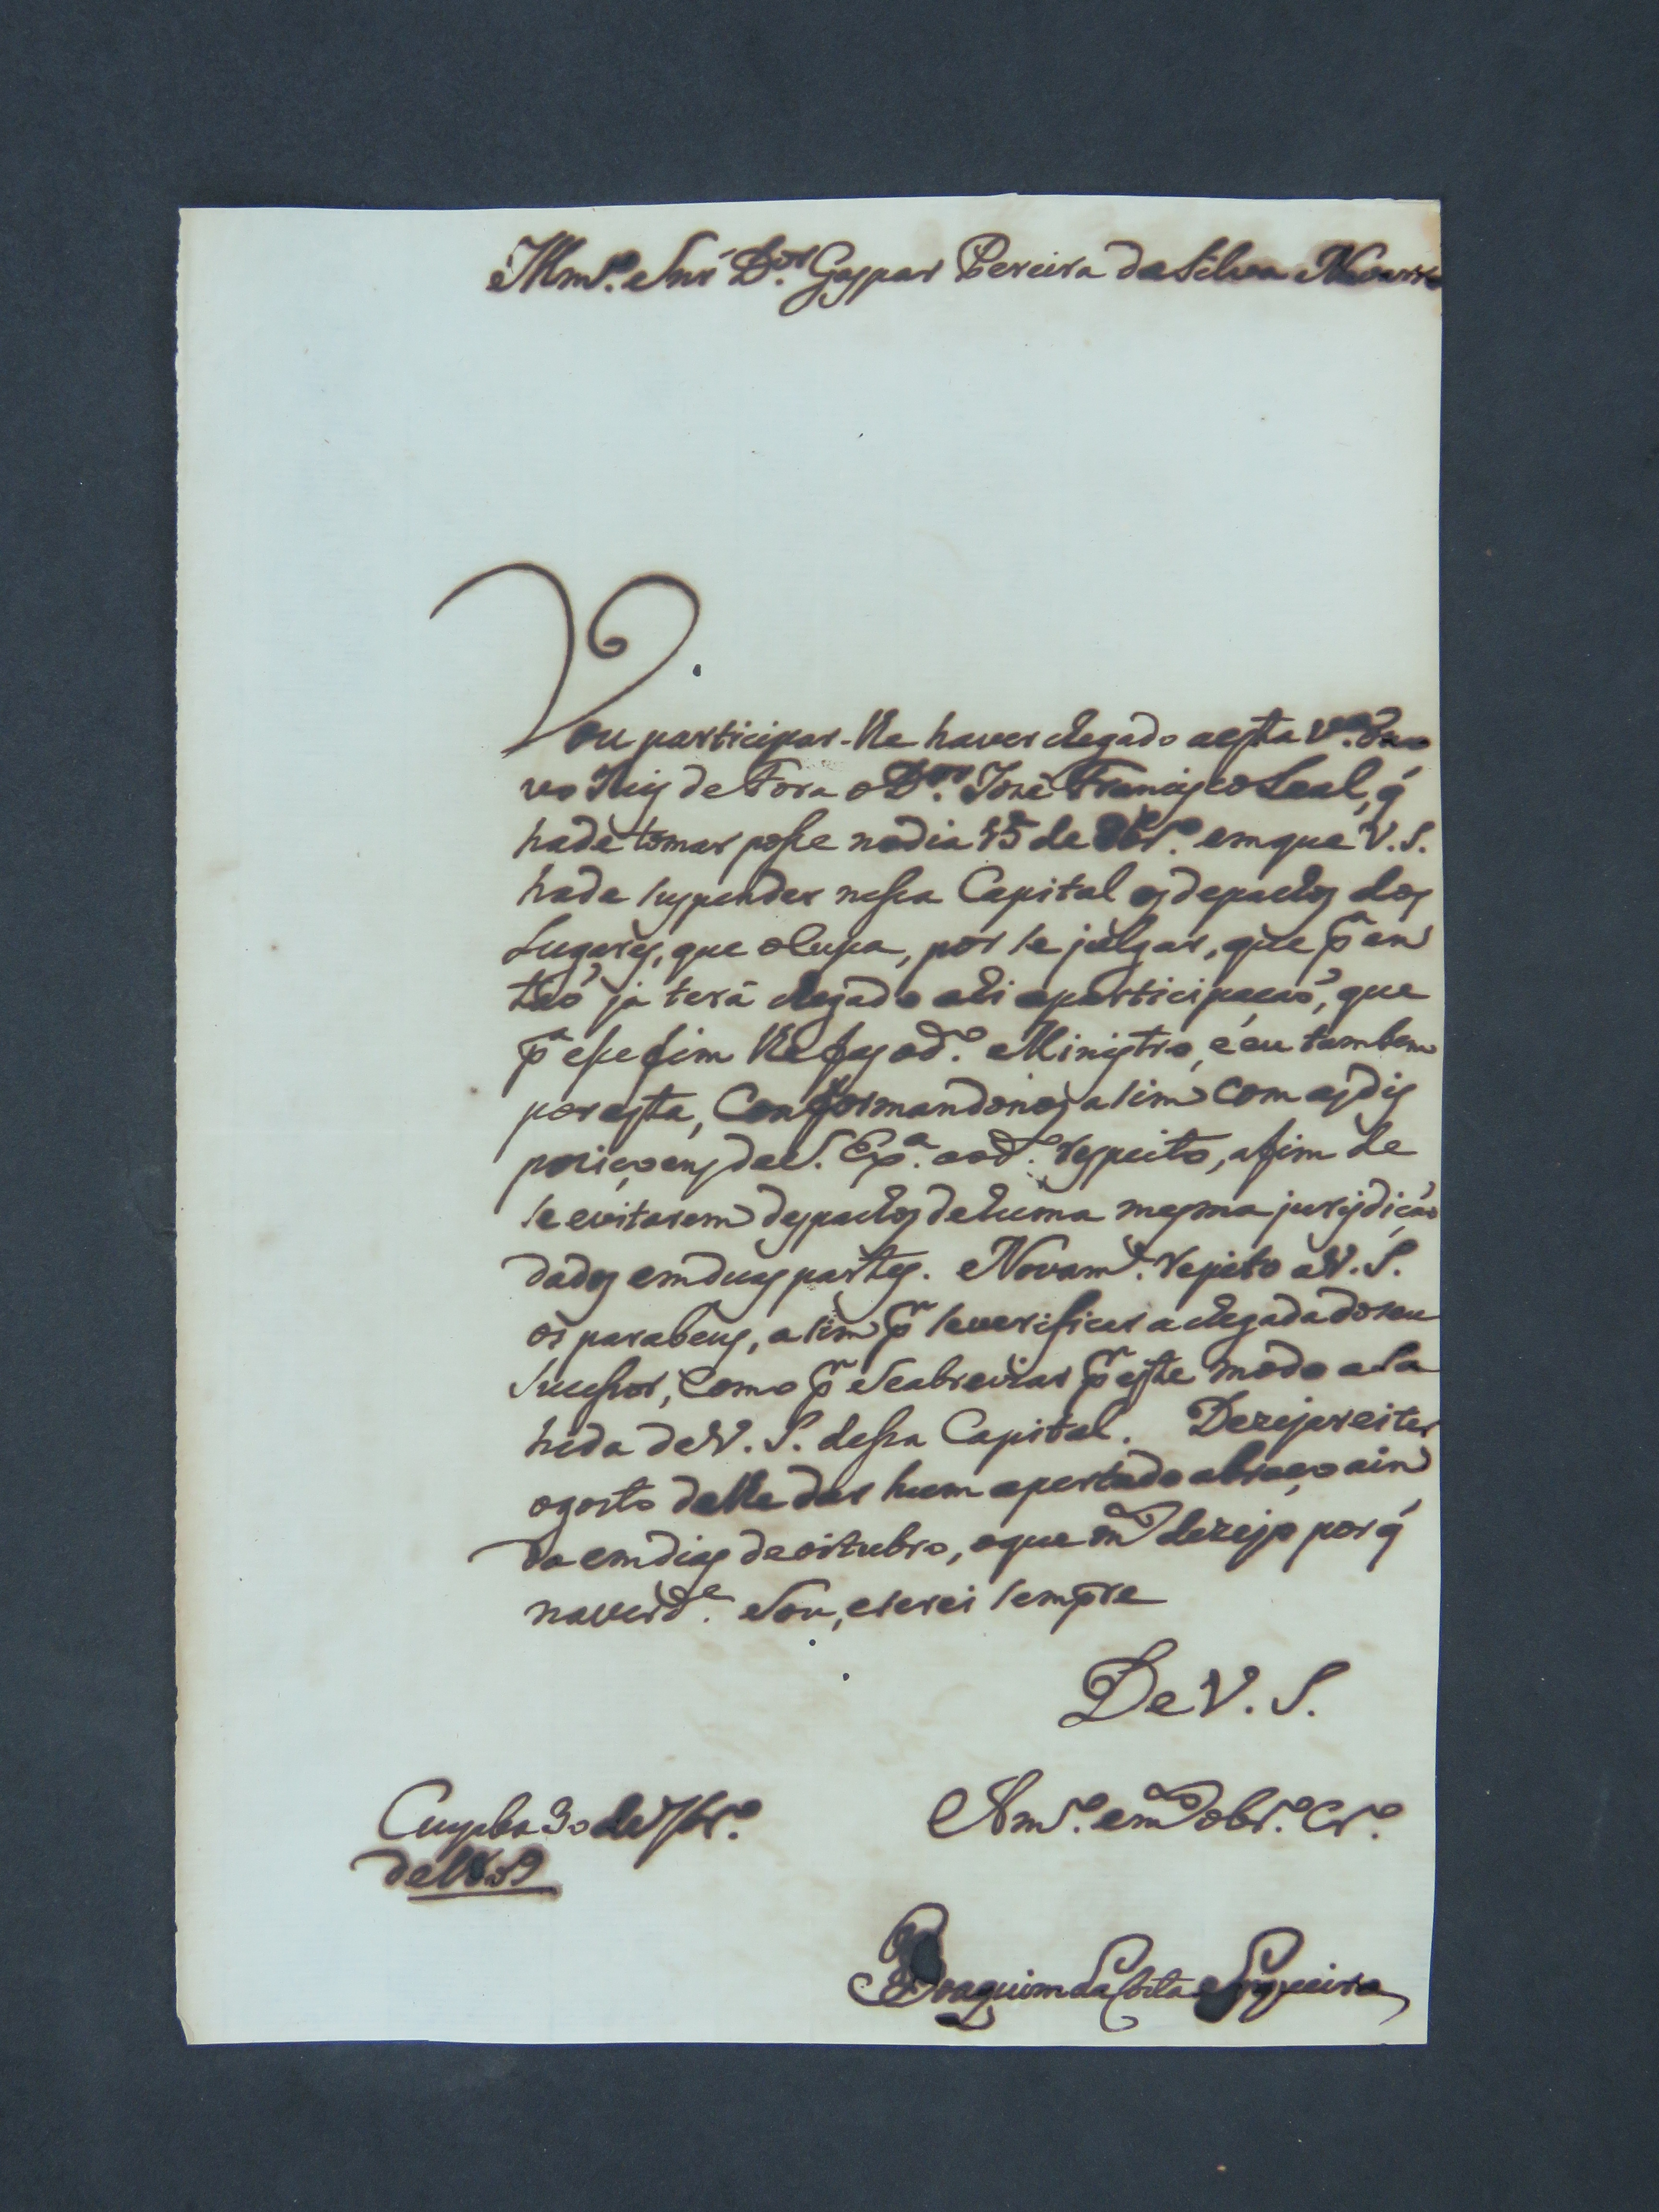 Illmo. Snr. Dor. Gaspar Pereira da Silva Navarro
Vou participar-lhe haver chegado a esta va.
vo Juis de Fora o Dor. Jozé Francisco Leal, q̃
hade tomar posse no dia 15 de 8bro. em que V. S.
hade suspender nessa Capital os depachos dos
Lugares, que ocupa, por se julgar, que pa. en
taõ já terá chegado ahi a participaçaõ, que
pa. esse fim lhe fas o do. Ministro, e eu tambem
por esta, Conformandonos asim com as dis
poziçoens de S. Exa. ao do. respeito, afim de
se evitarem despachos de huma mesma jurisdiçaõ
dados em duas partes. Novamte. repito a V. S.
os parabens, asim pr. se verificar a chegada do seu
Sucessor, Como pr. se abreviar pr. este modo a sa
hida de V. S. dessa Capital. Dezejarei ter
o gosto de lhe dar hum apertado abraço ain
da em dias de oitubro, o que mto. dezejo por q̃
na verde. Sou, e serei sempre
De V. S.
Amo. e mto. obro. Cro.
Cuyaba 30 de 7bro.
de 1809
Joaquim da Costa Siqueira